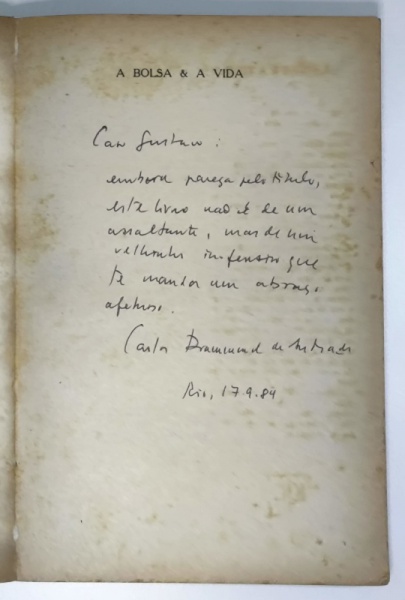 A BOLSA & A VIDA
Caro Gustavo:
embora pareça pelo título,
este livro não é de um
assaltante, mas de um
velhinho inofensivo que
te manda um abraço
afetuoso.
Carlos Drummond de Andrade
Rio, 17.9.84